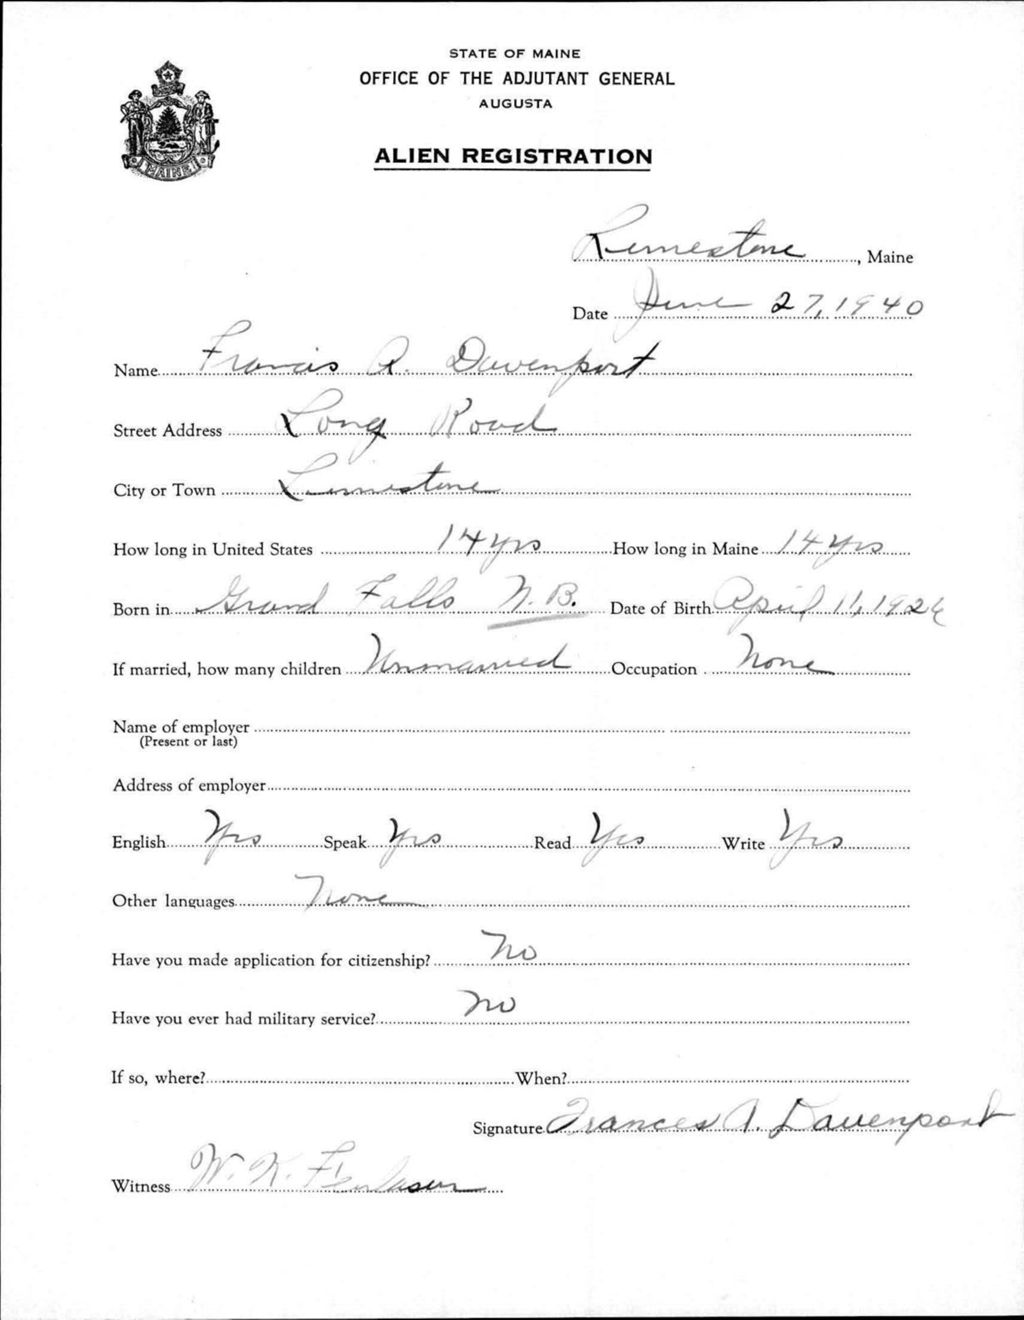 STATE OF MAINE
OFFICE OF THE ADJUTANT GENERAL
AUGUSTA
ALIEN REGISTRATION
MAINE
Limestone, Maine
Date June 27, 1940
Name Francis A. Davenport
Street Address Long Road
City or Town Limestone
How long in United States 14 yrs How long in Maine 14 yrs
Born in Grand Falls N.B. Date of Birth April 11, 1926
If married, how many children Unmarried Occupation None
Name of employer
(Present or last)
Address of employer
English Yes Speak Yes Read Yes Write Yes
Other languages None
Have you made application for citizenship? No
Have you ever had military service? No
If so, where? When?
Signature Frances A. Davenport
Witness W. K.